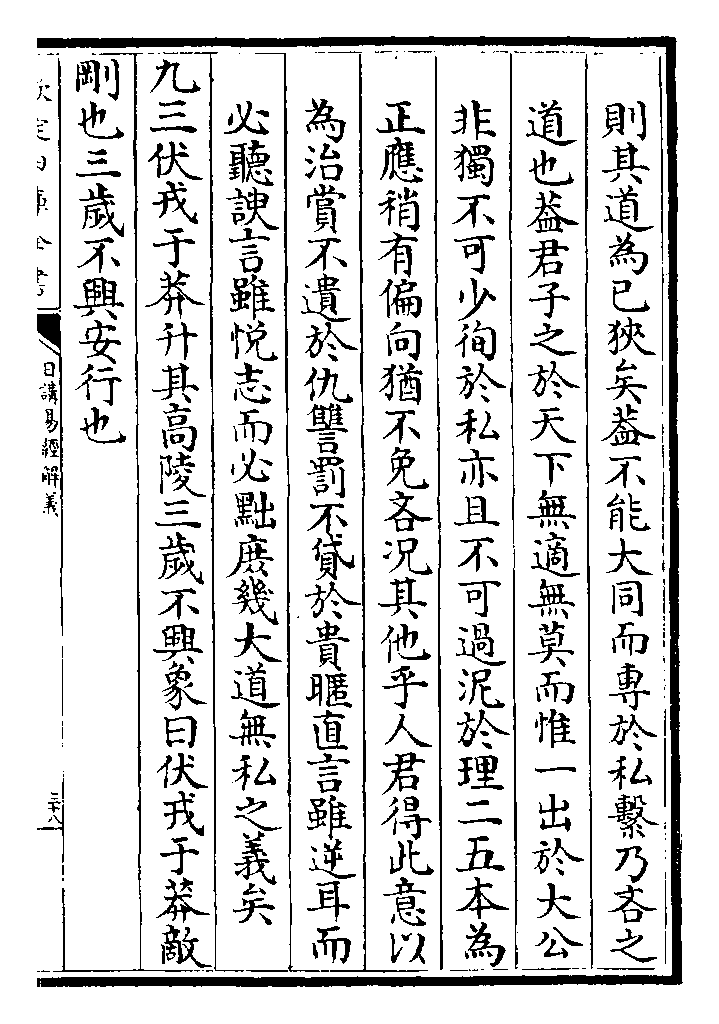 則其道為已狹矣葢不能大同而專於私繫乃吝之
道也葢君子之於天下無適無莫而惟一出於大公
非獨不可少徇於私亦且不可過泥於理二五本為
正應稍有偏向猶不免吝况其他乎人君得此意以
為治賞不遺於仇讐罰不貸於貴暱直言雖逆耳而
必聽諛言雖悦志而必黜庶幾大道無私之義矣
九三伏戎于莽升其高陵三歲不興象曰伏戎于莽敵
剛也三歲不興安行也
欽定四庫全書
日講易經解義
三十八